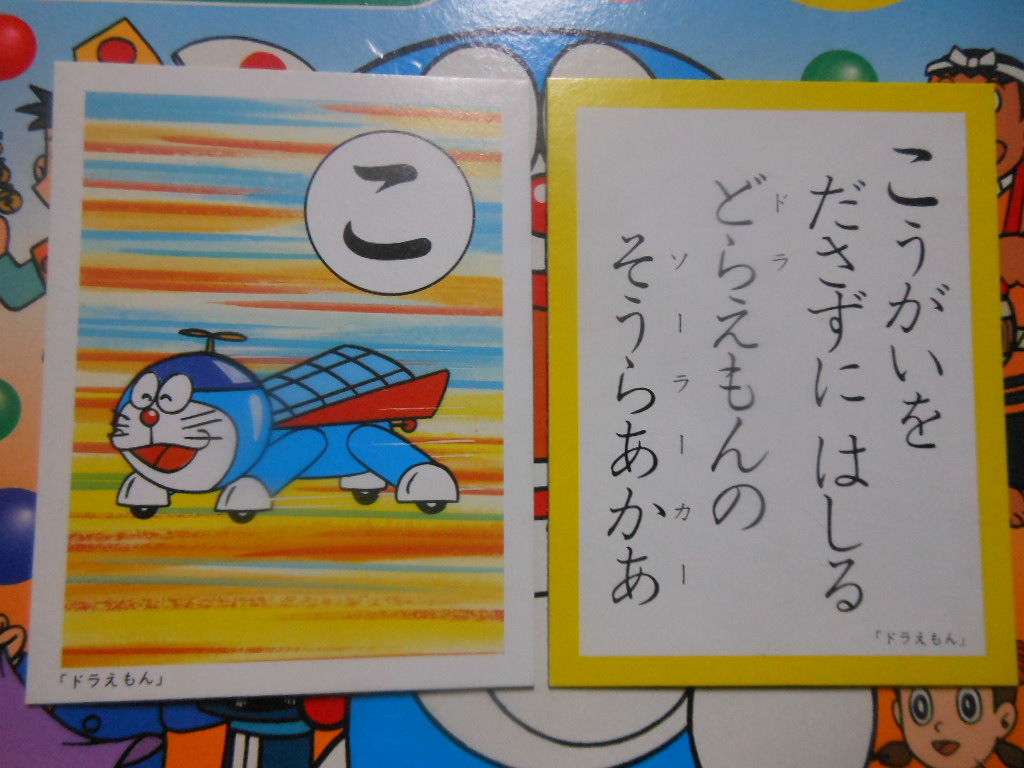 こ
「ドラえもん」
こうがいを
だささずに はしる
どらえもんの
ドラ
そうらあかあ
ソーラーカー
「ドラえもん」